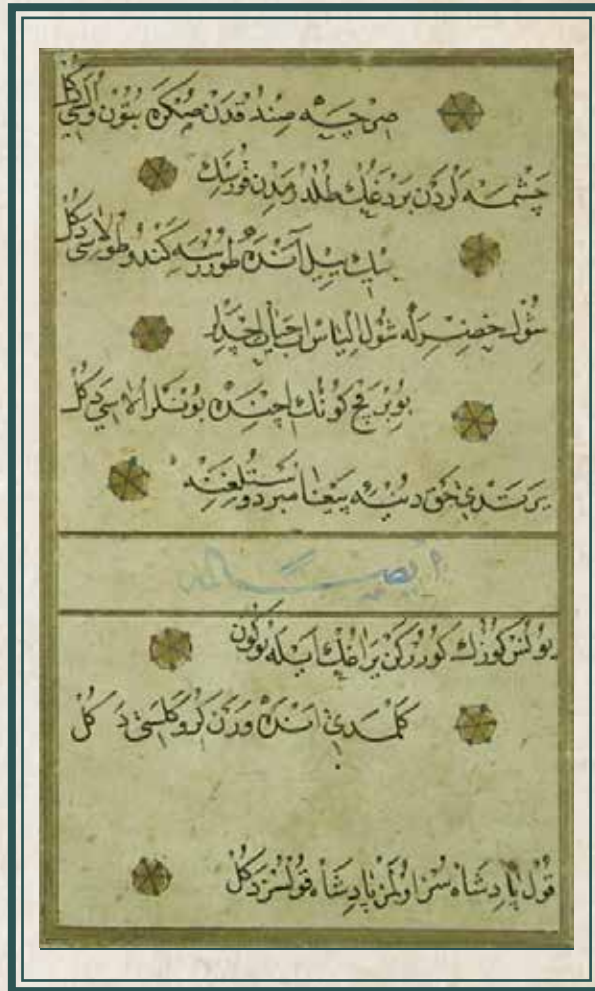 صرچه صندقدن صكره بتون اولاسي دكل
چشمه لردن بردغك طلدرمدن قورسك
بيك ييل آنده طوررسه كندو طولاسي دكل
شول خضرله شول الياس اب حيات اچديلر
بو بر قچ كونك اچنده بونلر اولاسي دكل
يرتدي حق دنيه پيغامبر دوستلغنه
ايضا
يوكس كوزك كوررکن يراغك ايله بوكون
كلمدي انده ورن كرو كلسي دكل
قول پادشاه سز اولمز پادشاه قولسز دكل